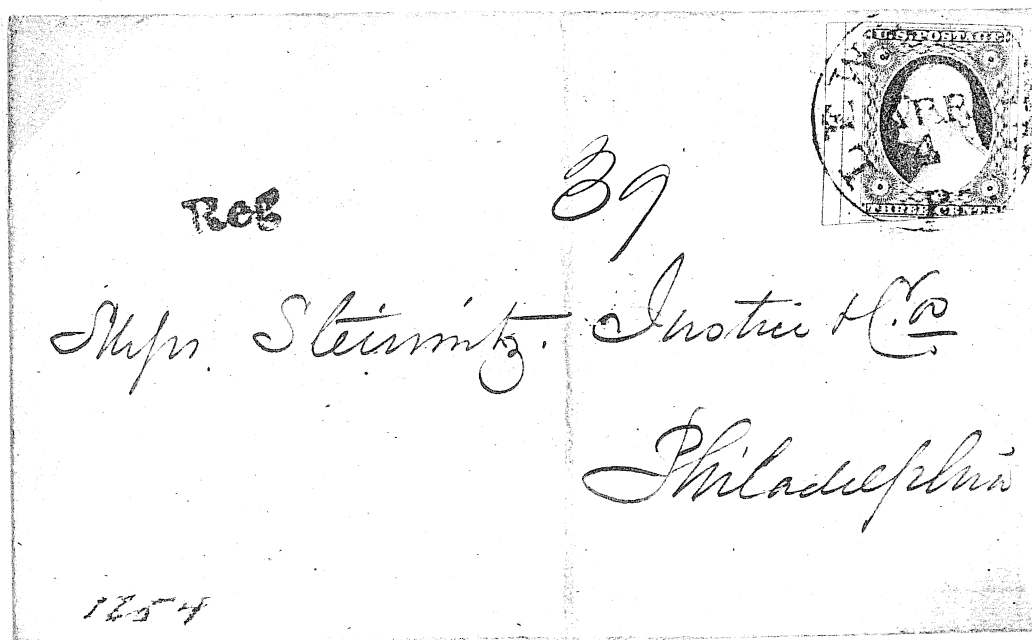 U.S. POSTAGE
THREE CENTS
4
REG
39
Messrs. Steinmitz. Justice & Co
Philadelphia
1854